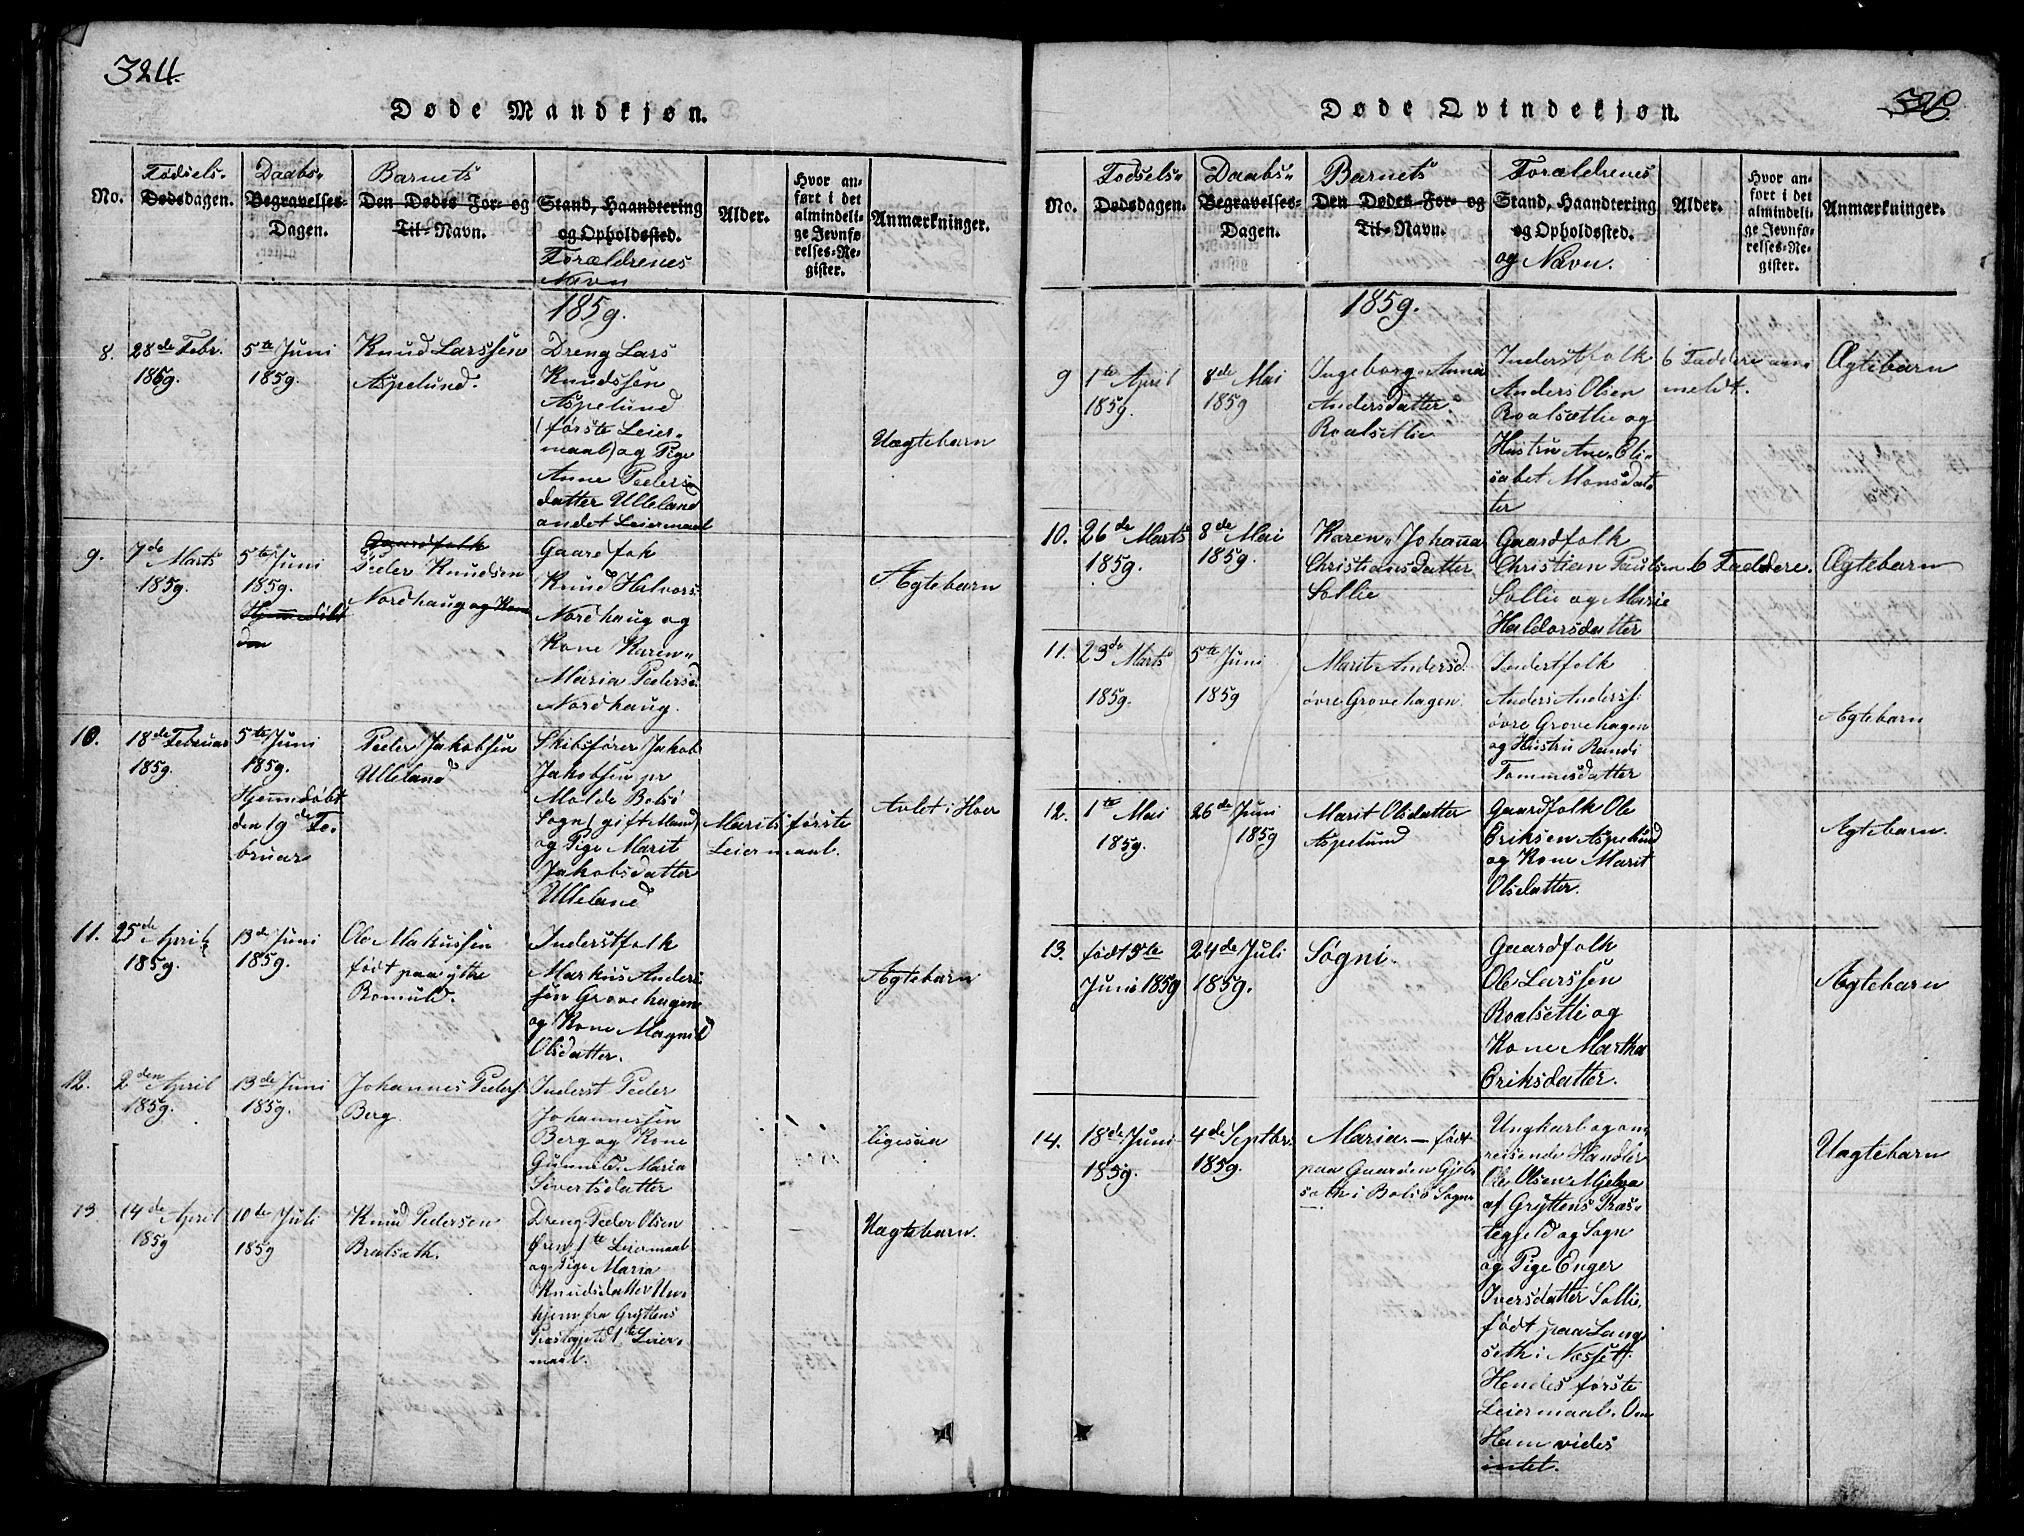 324.
Døde Mandkjøn.
No.
Fødsels-
Dødsdagen.
Daabs-
Begravelses-
Dagen.
Barnets
Den Dødes For- og
Til-Navn.
Stand, Haandtering
og Opholdssted.
Forældrenes
Navn
Alder.
Hvor an-
ført i det
almindeli-
ge Jevnfø-
relses-Re-
gister.
Anmærkninger.
1859.
8.
28de Febr.
1859.
5te Juni
1859.
Knud Larssen
Aspelund.
Dreng Lars
Knudssen
Aspelund
(første Leier-
maal) og Pige
Anne Peders
datter Ulleland
andet Leiermaal
Uægtebarn
9.
7de Marts
1859.
5te Juni
1859.
Hjemmedøbt
den
Gaardfolk
Peder Knudsen
Nordhaug og Kone
Gaardfok
Knud Halvors-
Nordhaug og
Kone Karen-
Maria Pedersd.
Nordhaug.
Ægtebarn
10.
18de Februar
1859.
5te Juni
1859.
Hjemmedøbt
den 19de Fe-
bruar
Peder Jakobsen
Ulleland
Skibsfører Jakob
Jakobsen pr
Molde Bolsø
Sogn (gift Mand)
og Pige Marit
Jakobsdatter
Ulleland
Marits første
Leiermaal.
Avlet i Hoer
11.
25de April
1859.
13de Juni
1859.
Ole Makussen
født paa ytre
Romuld.
Inderstfolk
Markus Anders-
sen Grovehagen
og Kone Magnild
Olsdatter.
Ægtebarn
12.
2den April
1859.
13de Juni
1859.
Johannes Peders.
Berg.
Inderst Peder
Johannessen
Berg og Kone
Gunnild Maria
Sivertsdatter
ligesaa
13
14de April
1859
10de Juli
1859
Knud Pedersen
Bratsæth.
Dreng Peder Olsen
Øren 1te Leiermaal
og Pige Maria
Knudsdatter Un-
hjem fra Gryttens
Præstegjeld 1te Leier-
maal.
Uægtebarn.
Døde Qvindekjøn.
No.
Fødsels-
Dødsdagen.
Daabs-
Begravelses-
Dagen.
Barnets
Den Dødes For- og
Til-Navn.
Forældrenes
Stand, Haandtering
og Opholdssted.
og Navn.
Alder.
Hvor an-
ført i det
almindeli-
ge Jevnfø-
relses-Re-
gister.
Anmærkninger.
1859.
9
1te April
1859.
8de Mai
1859
Ingeborg Anna
Andersdatter
Roalsetlie
Inderstfolk
Anders Olsen
Roalsætlie og
Hustru Ane Eli-
sabet Monsdat-
ter
6 Faddere an-
meldt.
Ægtebarn
10.
26de Marts
1859.
8de Mai
1859.
Karen Johanna
Christiansdatter
Sollie
Gaardfolk
Christian Paulsen
Sollie og Marie
Haldorsdatter
6 Faddere.
Ægtebarn
11.
23de Marts
1859.
5te Juni
1859
Marit Andersd.
øvre Grovehagen.
Inderstfolk
Anders Anderss.
øvre Grovehagen
og Hustru Randi
Tommesdatter
Ægtebarn
12.
1te Mai
1859.
26de Juni
1859
Marit Olsdatter
Aspelund
Gaardfolk Ole
Eriksen Aspelund
og Kone Marit
Olsdatter.
Ægtebarn.
13.
født 5te
Juni 1859
24de Juli
1859.
Søgni.
Gaardfolk
Ole Larssen
Roalsetli og
Kone Martha
Eriksdatter.
Ægtebarn
14.
18de Juni
1859.
4de Septbr.
1859.
Maria. — født
paa Gaarden
sæth i Bolsø Sogn
Ungkarl og om-
reisende Handler
Ole Olsen Mjelva
af Gryttens Præs-
tegjeld og Sogn
og Pige Enger
Iversdatter Sollie,
født paa Lang-
seth i Nesset.
Hendes første
Leiermaal. Om
Ham vides
intet.
Uægtebarn